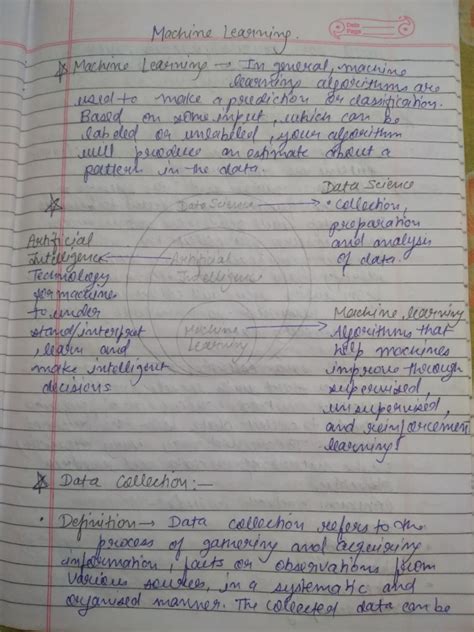 Machine Learning.
Date
Page
Machine Learning → In general, machine
learning algorithms are
used to make a prediction or classification.
Based on some input, which can be
labeled or unlabeled, your algorithm
will produce an estimate about a
pattern in the data.
Data Science → Data Science
• collection,
preparation
and analysis
of data.
Artificial
Intelligence ← Artificial
Intelligence
Technology
for machines
to under
stand/interpret
, learn and
make intelligent
decisions
Machine Learning → Machine learning
Algorithms that
help machines
improve through
supervised,
unsupervised,
and reinforcement
learning.
Data Collection:—
• Definition → Data collection refers to the
process of gathering and acquiring
information, facts or observations from
various sources, in a systematic and
organised manner. The collected data can be